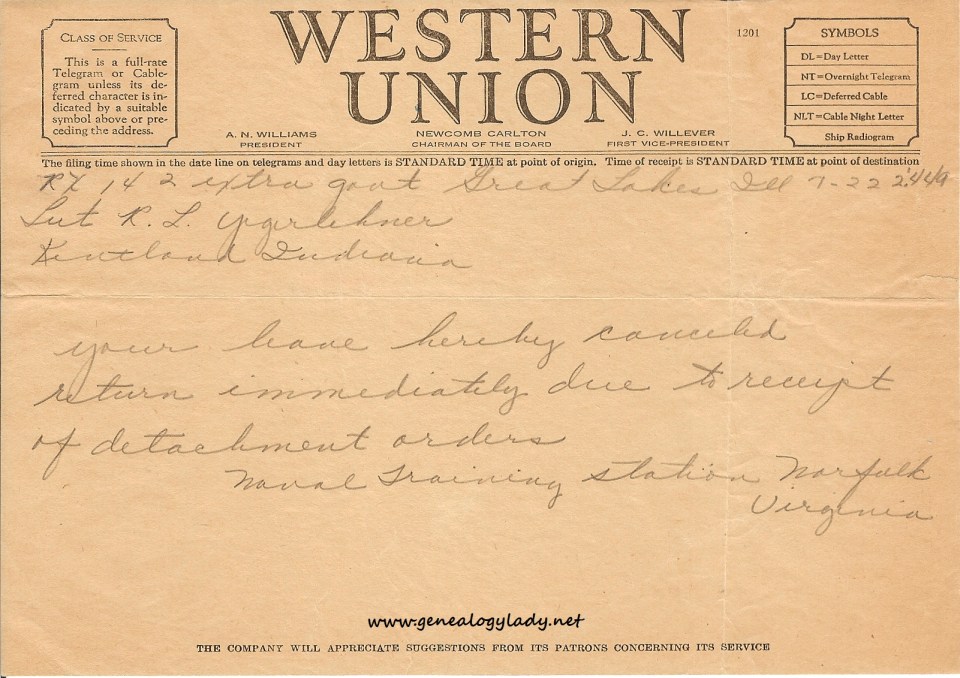 CLASS OF SERVICE
This is a full-rate
Telegram or Cable-
gram unless its de-
ferred character is in-
dicated by a suitable
symbol above or pre-
ceding the address.
WESTERN
UNION
1201
A. N. WILLIAMS
PRESIDENT
NEWCOMB CARLTON
CHAIRMAN OF THE BOARD
J. C. WILLEVER
FIRST VICE-PRESIDENT
SYMBOLS
DL=Day Letter
NT=Overnight Telegram
LC=Deferred Cable
NLT=Cable Night Letter
Ship Radiogram
The filing time shown in the date line on telegrams and day letters is STANDARD TIME at point of origin. Time of receipt is STANDARD TIME at point of destination
14 2 extra govt Great Lakes Ill 7-22
R. L.
Kentland Indiana
your leave hereby canceled
return immediately due to receipt
of detachment orders
Naval Training station Norfolk
Virginia
www.genealogylady.net
THE COMPANY WILL APPRECIATE SUGGESTIONS FROM ITS PATRONS CONCERNING ITS SERVICE